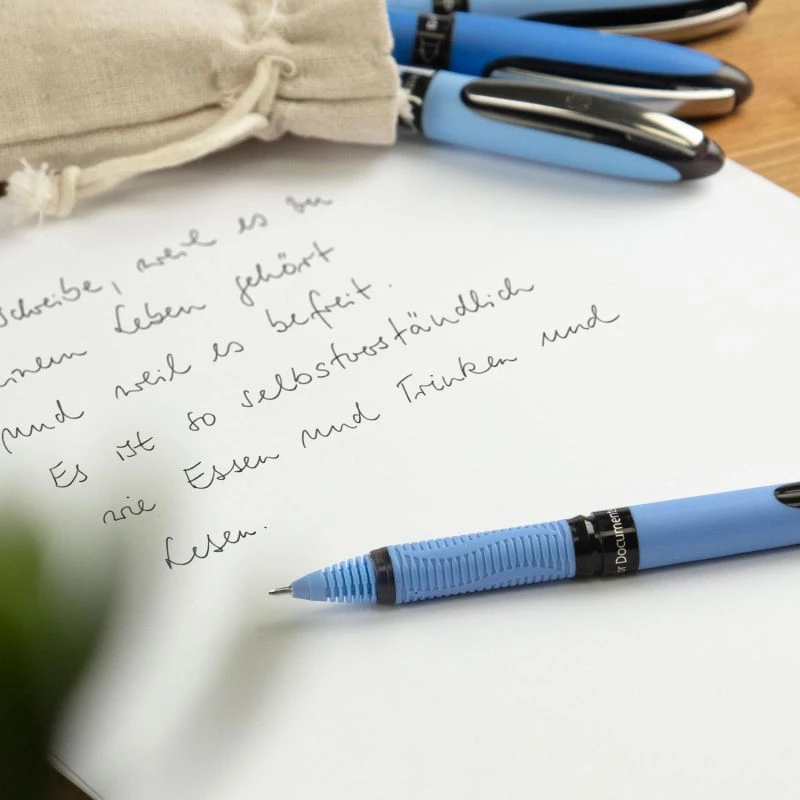 schreibe, weil es zu
inem Leben gehört
und weil es befreit.
Es ist so selbstverständlich
wie Essen und Trinken und
Lesen.
or Document